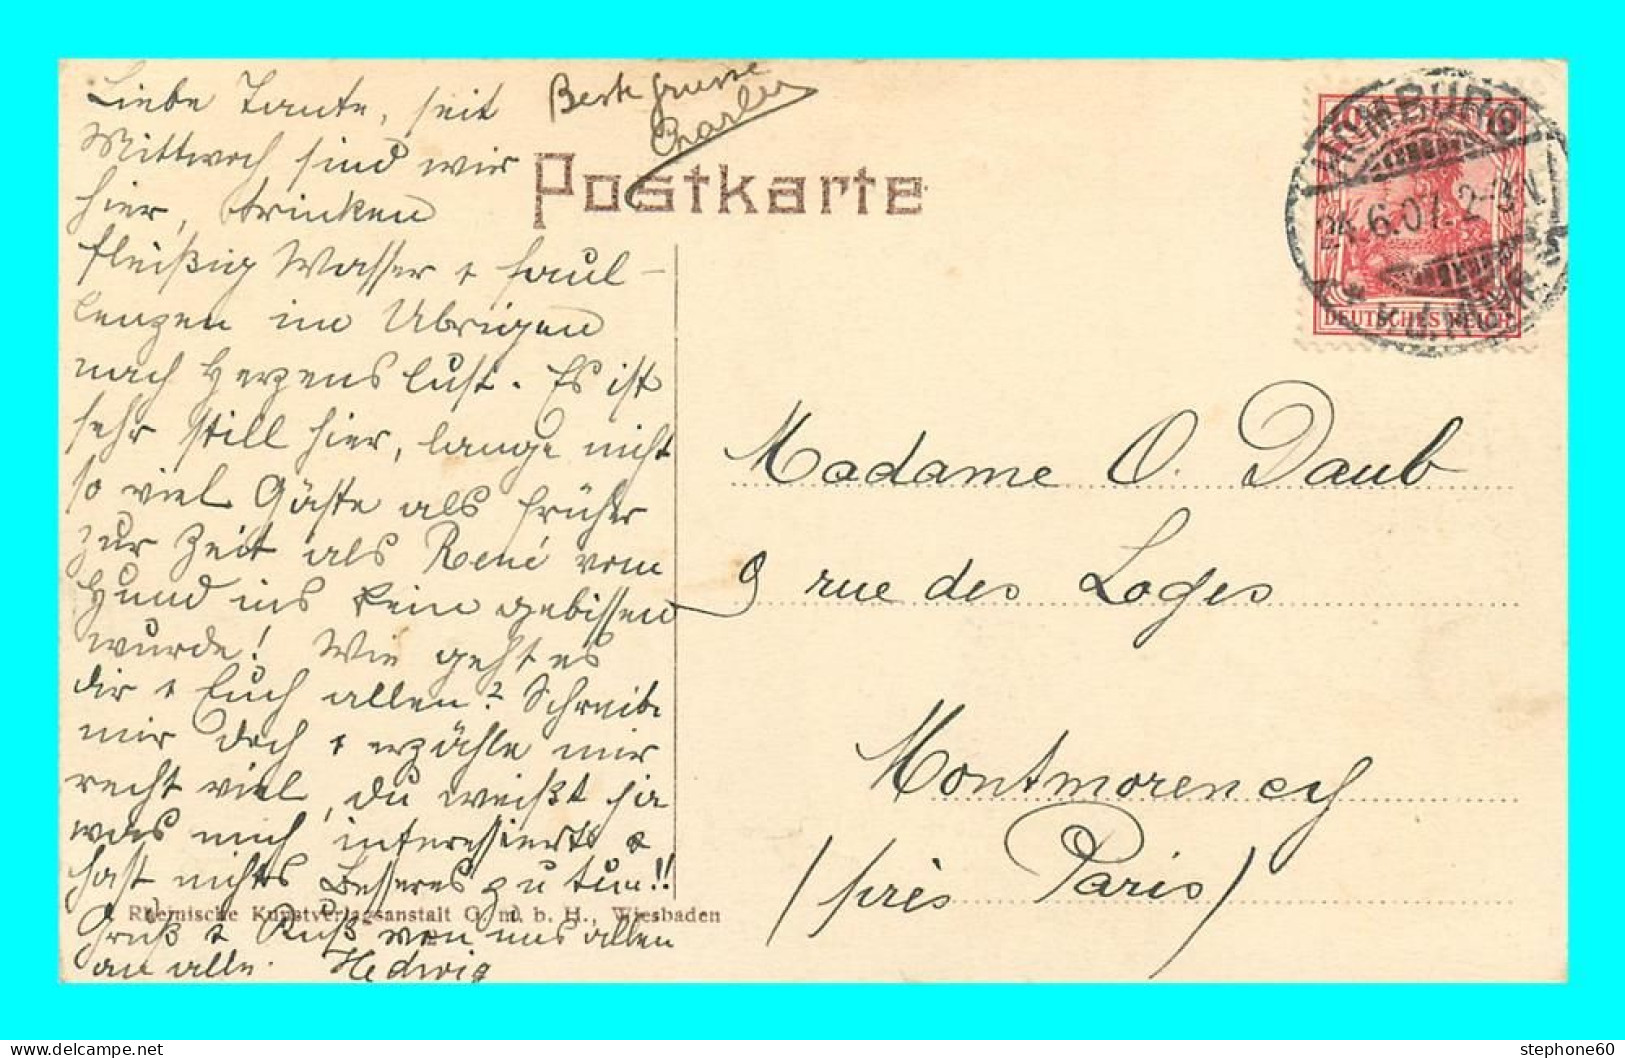 Liebe Tante, seit
Mittwoch sind wir
hier, trinken
fleißig Wasser + faul-
lenzen im Übrigen
nach Herzenslust. Es ist
sehr still hier, lange nicht
so viel Gäste als früher
zur Zeit als René vom
Hund ins Bein gebissen
wurde! Wie geht es
dir + Euch allen? Schreibe
mir doch + erzähle mir
recht viel, du weißt ja
was mich interessiert +
hast nichts Besseres zu tun!!
Gruß + Kuß von uns allen
an alle. Hedwig
Beste Grüsse
Charles
Postkarte
HOMBURG
24.6.07. 2-3N
DEUTSCHES REICH
Madame O. Daub
9 rue des Loges
Montmorency
(près Paris)
Rheinische Kunstverlagsanstalt G. m. b. H., Wiesbaden
stephone60